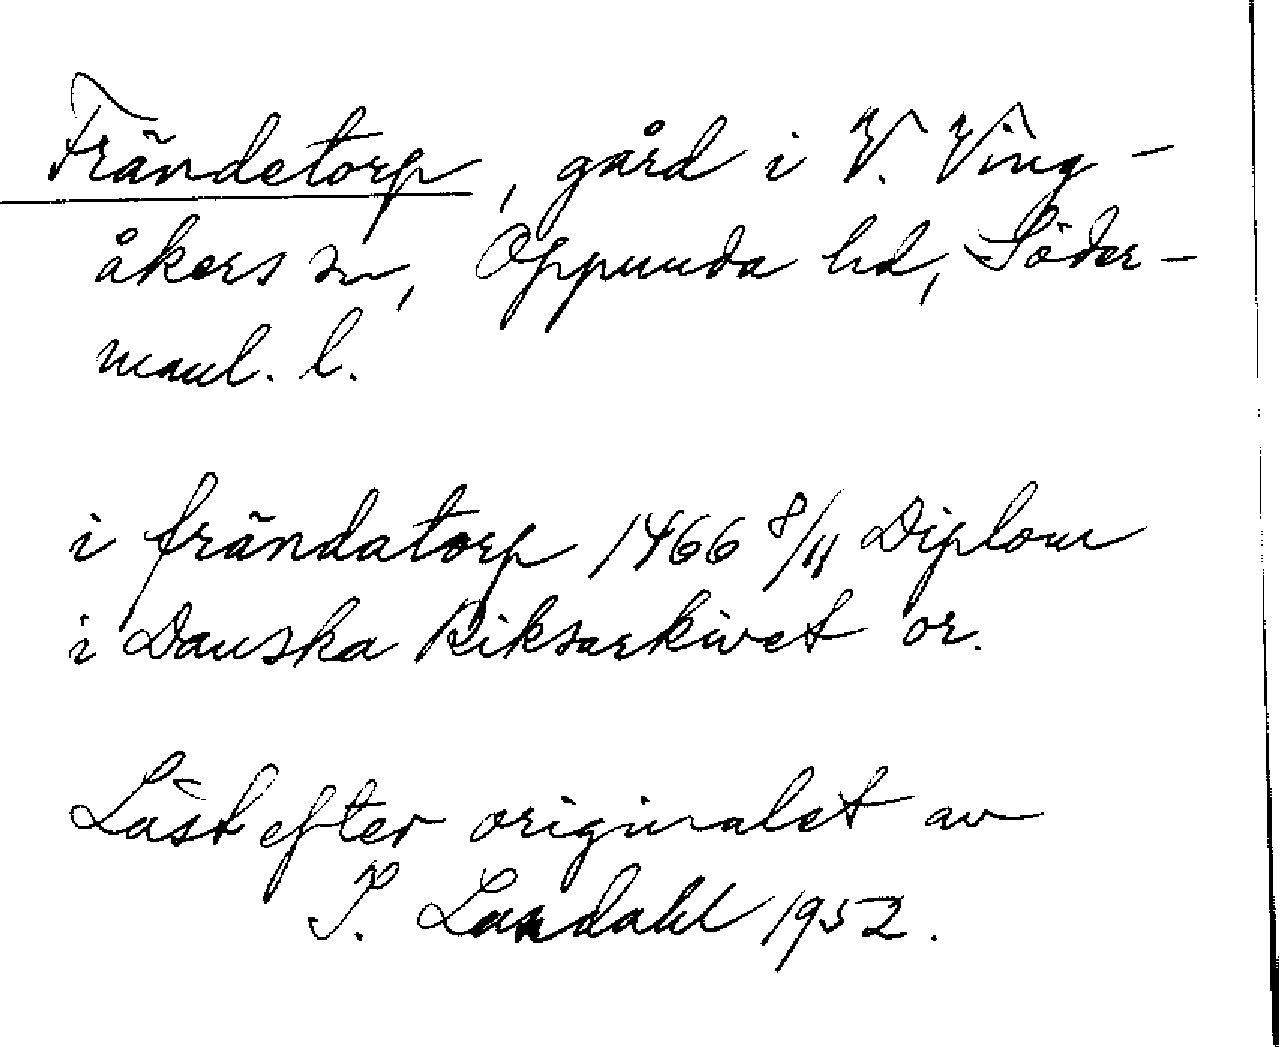 Frändetorp, gård i V. Ving-
åkers sn, Oppunda hd, Söder-
manl. l.
i frändatorp 1466 8/11 Diplom
i Danska Riksarkivet or.
Läst efter originalet av
S. Landahl 1952.